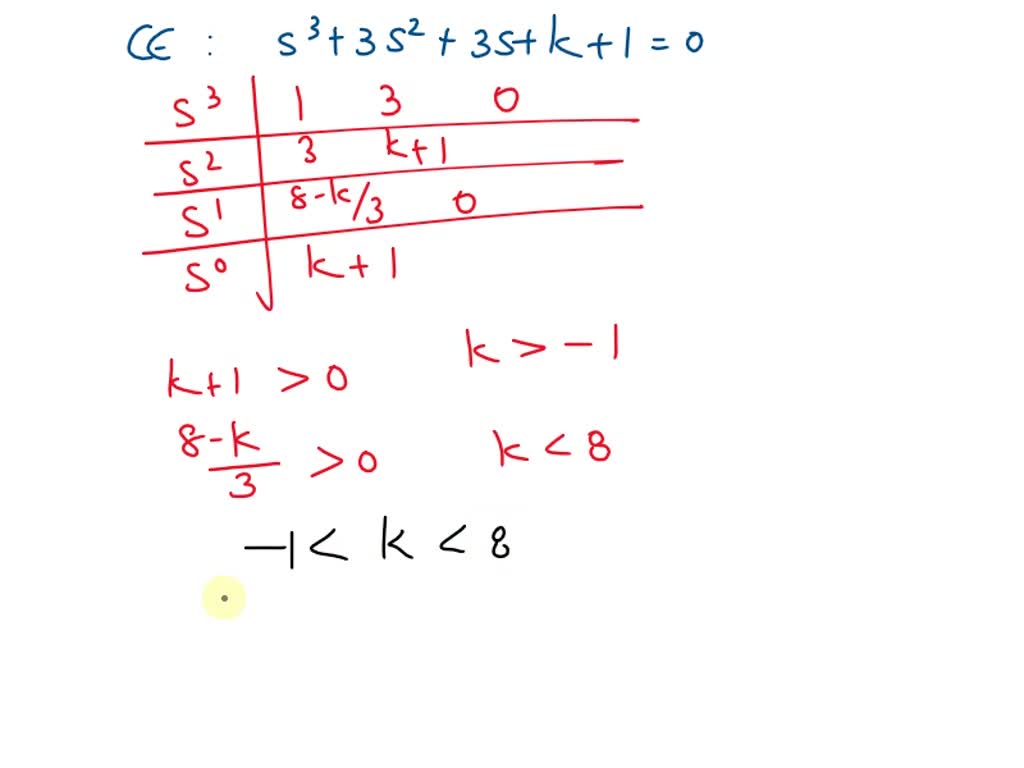 CE : s³ + 3s² + 3s + k + 1 = 0
s³ 1 3 0
s² 3 k+1
s¹ 8-k/3 0
s⁰ k+1
k+1 > 0 k > -1
8-k/3 > 0 k < 8
-1 < k < 8